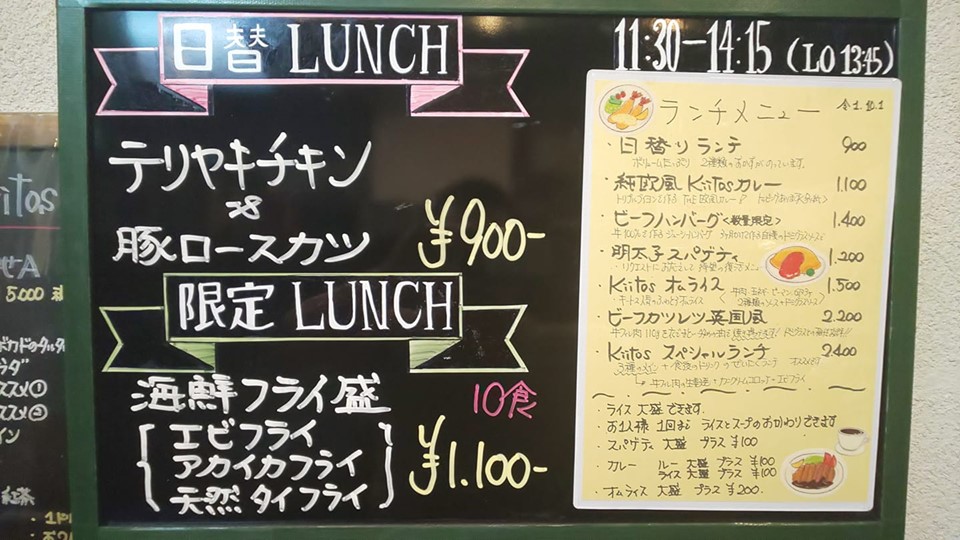 日替 LUNCH
テリヤキチキン
&
豚ロースカツ
¥900-
限定 LUNCH
海鮮フライ盛
10食
エビフライ
アカイカフライ
天然タイフライ
¥1.100-
11:30-14:15 (LO 13:45)
ランチメニュー
令1.10.1
・日替りランチ 900
ボリュームたっぷり 2種類のおかずがのっています。
・純欧風 Kiitosカレー 1.100
・ビーフハンバーグ<数量限定> 1.400
・明太子スパゲティ 1.200
・Kiitos オムライス 1.500
・ビーフカツレツ英国風 2.200
・Kiitos スペシャルランチ 2400
・ライス 大盛 できます。
・お1人様 1回まで ライスとスープのおかわりできます
・スパゲティ 大盛 プラス ¥100
・カレー ルー 大盛 プラス ¥100
ライス 大盛 プラス ¥100
・オムライス 大盛 プラス ¥200.
iitos
せA
5.000
ラダ
スメ①
スメ②
イン
紅茶